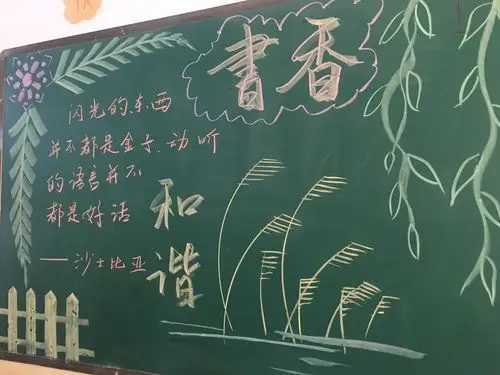 書香
闪光的东西
并不都是金子.动听
的语言并不
都是好话
——沙士比亚
和
谐